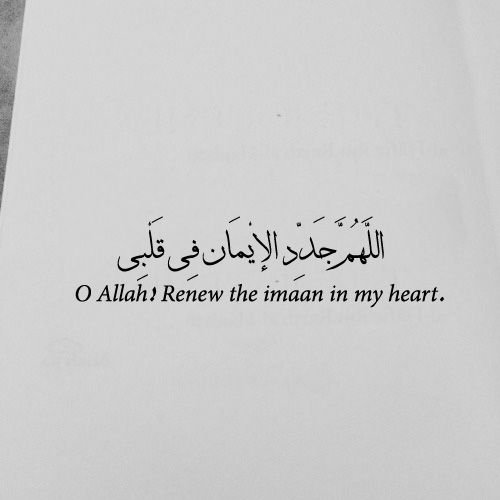 اللَّهُمَّ جَدِّد الإيْمَان فِى قَلْبِى
O Allah! Renew the imaan in my heart.